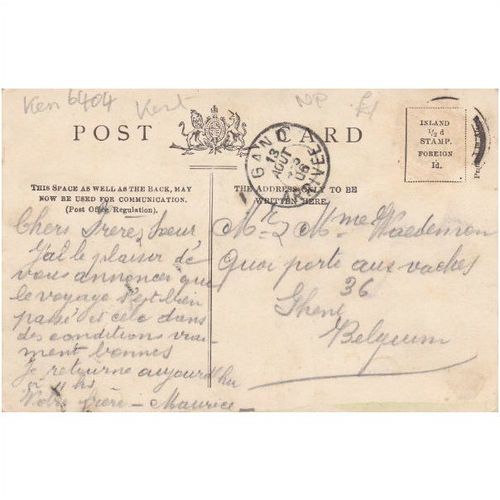 Ken 6404
Kent
NP
£1
POST CARD
INLAND
½ d
STAMP.
FOREIGN
1d.
GAND
13
AOUT
06
THIS SPACE AS WELL AS THE BACK, MAY
NOW BE USED FOR COMMUNICATION.
(Post Office Regulation).
THE ADDRESS ONLY TO BE
WRITTEN HERE.
Chers Frère, Sœur
J'ai le plaisir de
vous annoncer que
le voyage s'est bien
passé et cela dans
des conditions vrai
ment bonnes
Je retourne aujourd'hu
à 11 hs
Votre frère - Maurice -
Mr & Mme Waedemon
Quai porte aux vaches
36
Ghent
Belgium